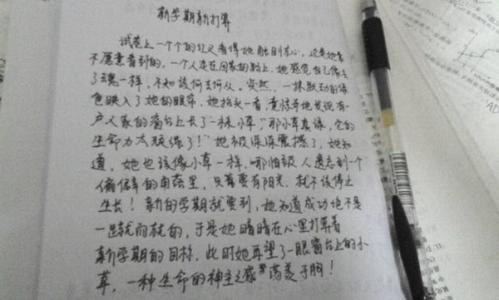 新学期新打算
试卷上一个个的红叉看得她触目惊心，这是她最
不愿意看到的，一个人走在回家的路上，她感觉自己像丢
了魂一样，不知该何去何从。突然，一抹跃动的绿
色映入了她的眼帘，她抬头一看，意外地发现有
户人家的窗台上长了一株小草，"那小草真绿，它的
生命力太顽强了！"她被深深震撼了，她知
道，她也该像小草一样，哪怕被人遗忘到一个
偏僻的角落里，只要要有阳光，就不该停止
生长！新的学期就要到，她知道成功绝不是
一蹴而就的，于是她暗暗在心里打算着
新学期的目标，此时她再望了一眼窗台上的小
草，一种生命的神圣之感荡漾于胸！